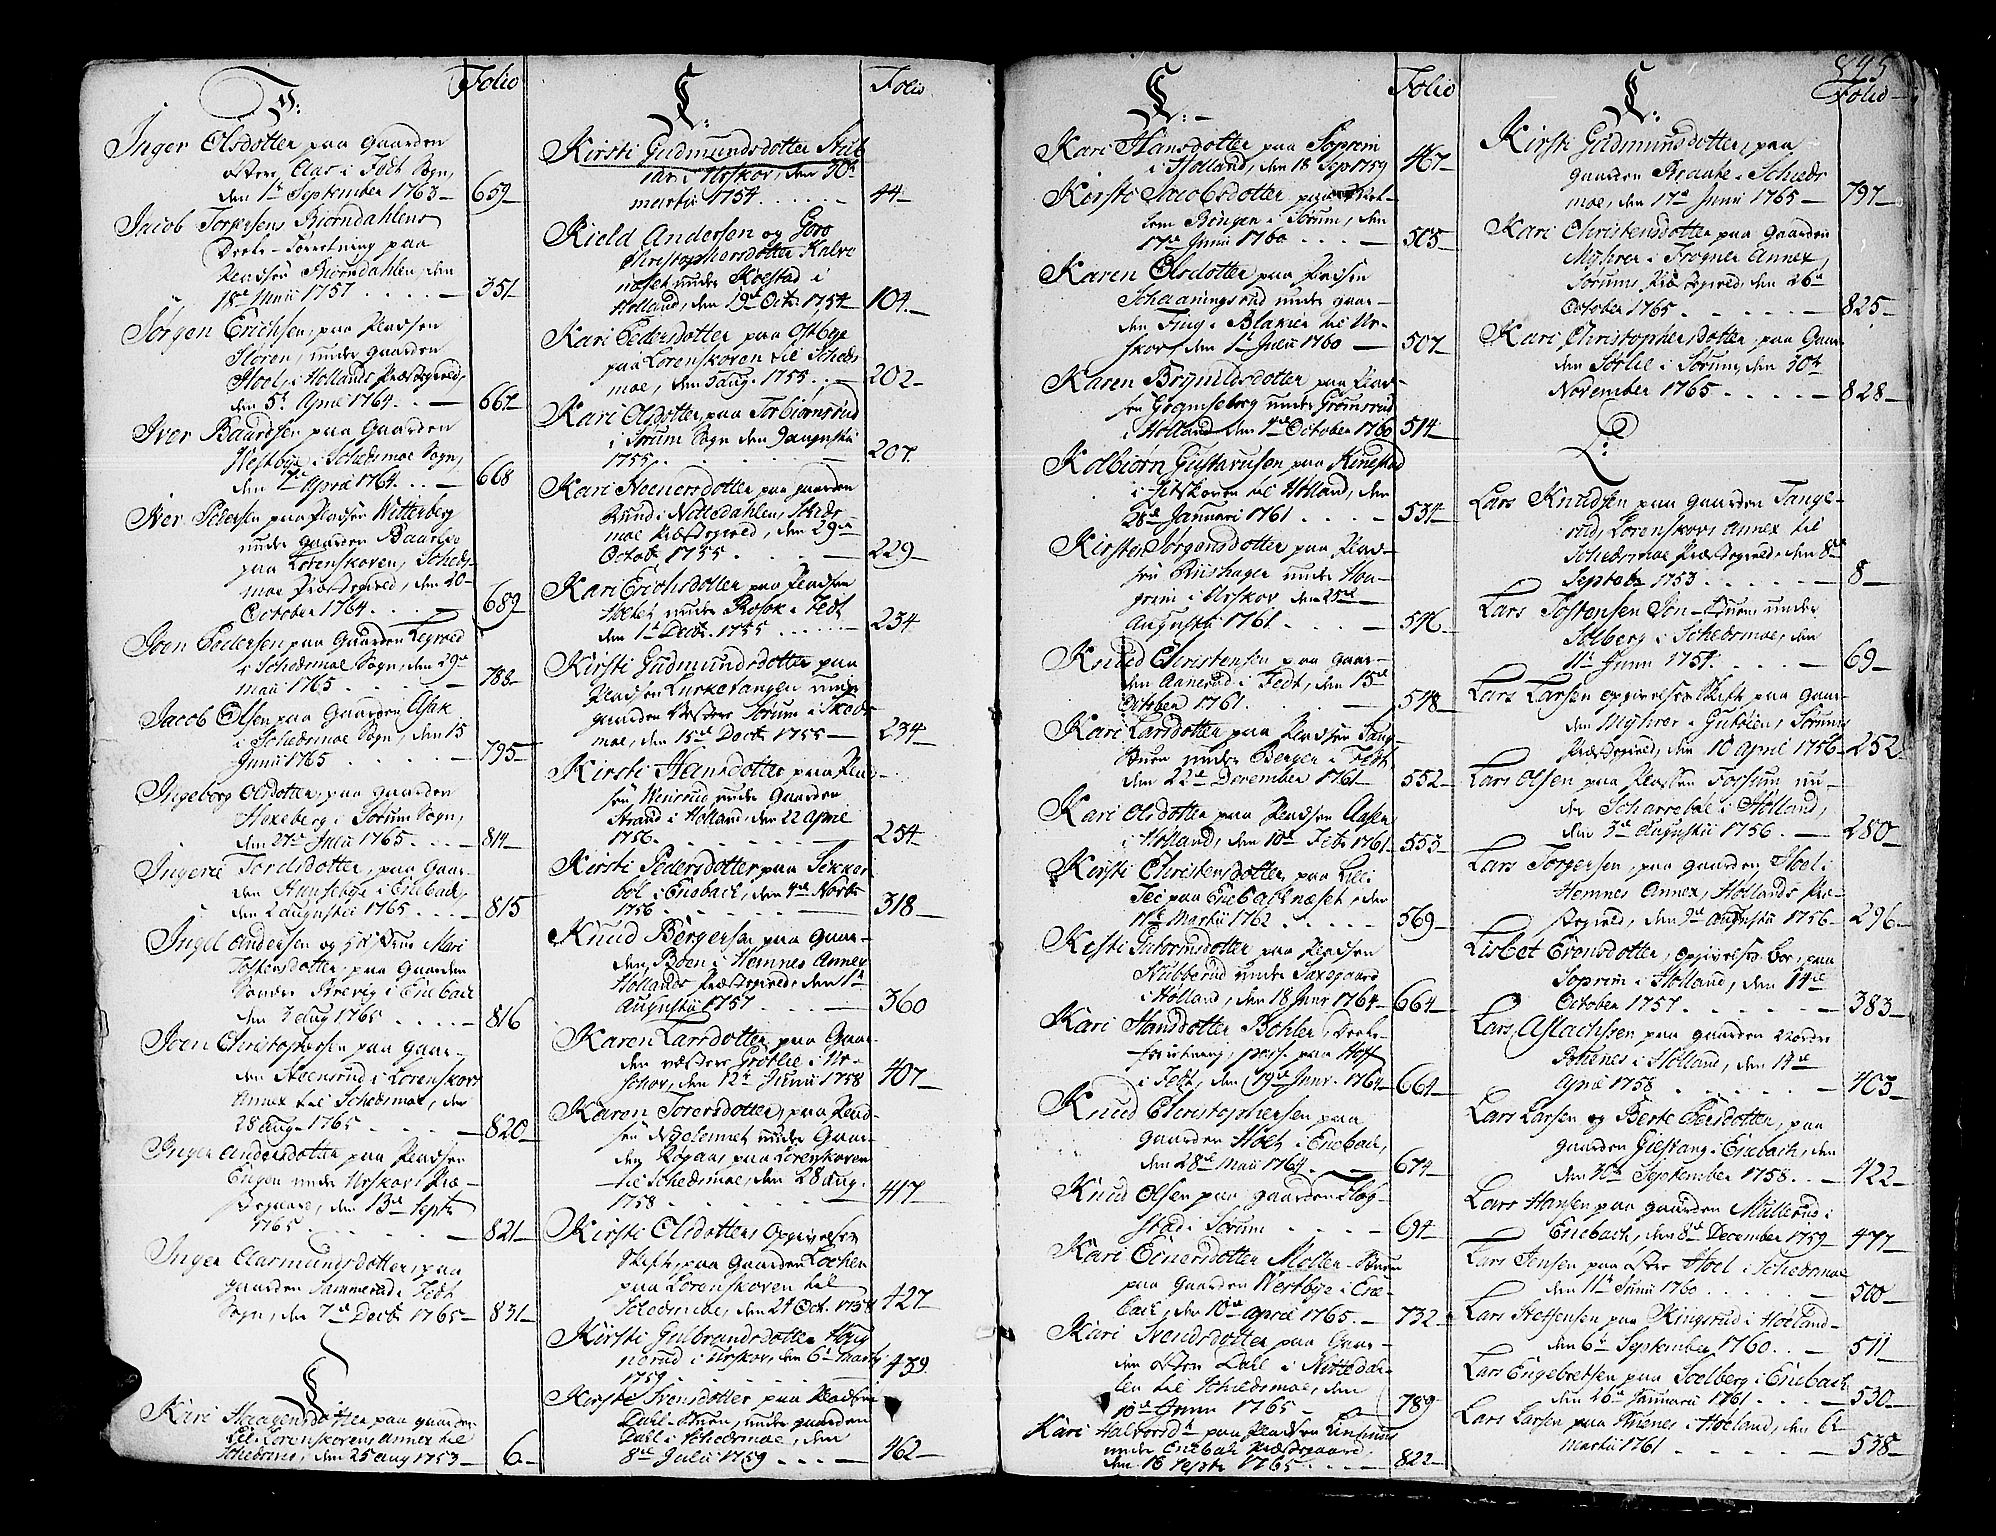 J: Folio
Inger Olsdotter paa Gaarden
østere Aas i Fedt Sogn,
den 1te September 1763 — 659
Jacob Torgersens Biørndahlens
Deele-Forretning paa
Pladsen Biørndahlen, den
18de Junii 1757 . . . . — 351
Jørgen Erichsen, paa Pladsen
Floren, under Gaarden
Hoel, i Hollands Præstegield,
den 5t April 1764. . . — 667
Iver Baardsen paa Gaarden
Westbye i Schedsmoe Sogn,
den 7de April 1764. . . — 668
Iver Pedersen paa Pladsen Witterberg
under Gaarden Baarlie
paa Lorenskoven, Scheds-
moe Præstegield, den 20
October 1764 . . . — 689
Joen Pedersen paa Gaarden Legreed
i Schedsmoe Sogn, den 29de
maii 1765 . . . . — 788
Jacob Olsen paa Gaarden Asak
i Schedsmoe Sogn, den 15
Junii 1765 . . . . — 795
Ingeborg Olsdotter, paa Gaarden
Hexeberg i Sørum Sogn,
den 27de Julii 1765 . . . — 814
Ingerie Tordsdotter, paa Gaar-
den Hunsebye i Enebach,
den 2 augustii 1765 . . . — 815
Ingel Andersen og Hustrue Mari
Tostensdotter, paa Gaarden
Søndre Krevig i Enebach
den 3 aug 1765 . . . . — 816
Joen Christophersen paa Gaar-
den Steensrud i Lorenskovs
Annex til Schedsmoe, den
28 aug. 1765 . . . . — 820
Inger Andersdotter paa Pladsen
Engen under Urskovs Præ-
stegaard, den 13de Septr
1765 . . . . — 821
Inger Aamundsdotter, paa
gaarden Sammerud i Fedt
Sogn, den 7de Dectr 1765 — 831
K
Kari Haagensdotter paa gaarden
til Lorenskovens Annex til
Schedsmo, den 25 aug 1753 — 6
K: Folio
Kirsti Gudmundsdotter Stub-
tar i Urskov, den 30te
martii 1754 . . . . . — 44
Kield Andersen og Goro
Christophersdotter Kalve
næset under Koestad i
Holland, den 19de Octr 1754 — 104
Kari Pedersdotter paa Østbye
paa Lorenskoven til Scheds
moe, den 5 aug. 1755 . . — 202
Kari Olsdotter, paa Torbiørnsrud
i Sørum Sogn den 9 augustii
1755 . . . . — 207
Kari Steenersdotter paa gaarden
Rud i Nittedahlen, Scheds
moe Præstegield, den 29de
Octobr 1755 . . . — 229
Kari Erichsdotter paa Pladsen
Hølet under Kosok i Fedt
den 1te Dectr. 1755 . . . — 234
Kirsti Gudmundsdotter paa
Pladsen Lurketangen under
gaarden Vestere Sørum i Skeds
moe, den 15de Dectr 1755 — 234
Kirsti Hansdotter paa Plad-
sen Wensrud under Gaarden
Strand i Holland, den 22 april
1756 . . . . — 254
Kirsti Pedersdotter paa Sekker
bøl i Enebach, den 4de Novbr
1756 . . . . — 318
Knud Børgersen paa Gaar-
den Bøen i Hemnes Annex
Hollands Præstegield, den 1te
Augustii 1757 . . . — 360
Karen Larsdotter, paa Gaar-
den Vestere Grøtlie i Ur-
schov, den 12te Junii 1758 — 407
Karen Torersdotter, paa Plad-
sen Nyolennet under Gaar-
den Røgaas, paa Lorenskoven
til Schedsmoe, den 28 aug.
1758 . . . . — 417
Kirsti Olsdotters Opgivelses
Skift, paa Gaarden Lochen
paa Lorenskoven til
Schedsmoe, den 24 Oct. 1758 — 427
Kirsti Gulbrandsdotter Haug
nerud i Urskov, den 6te Martii
1759 . . . . — 439
Kirsti Svensdotter paa Pladsen
Dahl-Stuen, under gaarden
Dahl i Schedsmoe, den
8de Julii 1759 . . . . — 462
K: Folio
Kari Hansdotter paa Soprim
i Holland, den 18 Sep 1759 — 467
Kirsti Jacobsdotter paa
sem Bøngen i Sørum, den
17de Junii 1760 . . . — 505
Karen Olsdotter paa Pladsen
Schaaningsrud under gaar-
den Ting i Blakier til Ur-
skov, den 1te Julii 1760 — 507
Karen Brynildsdotter paa Plad-
sen Gromseborg under Gromsrud
i Holland den 4de October 1760 — 514
Kolbiørn Gustavusen paa Kinestad
i Setskoven til Hølland, den
28de Januari 1761 . . . . — 534
Kirsten Jørgensdotter paa Plad-
sen Riishagen under Haa-
grim i Urskov den 25de
Augustii 1761 . . . . — 546
Knud Christensen paa Gaar-
den Annerud i Fedt, den 15de
October 1761 . . . — 548
Kari Larsdotter paa Pladsen Haug-
stuen under Bergen i Fedt
den 22de December 1761 — 552
Kari Olsdotter paa Pladsen Aasen
i Holland, den 10de Febr 1761 — 553
Kirsti Christensdotter, paa Lill-
Tei paa Enebachnæset, den
17de Martii 1762 . . . . . — 569
Kirsti Guttormsdotter paa Pladsen
Stubberud under Saxegaard
i Holland, den 18 Janr 1764 — 664
Kari Hansdotter Bøhler, Deele
forretning, pass. paa Hoff
i Fedt, den 19de Janr. 1764 — 664
Knud Christophersen paa
gaarden Holt i Enebach,
den 28de Maii 1764 . . — 674
Knud Olsen paa gaarden Flog-
stad i Sørum . . . — 694
Kari Einersdotter Molten-Stuen
paa Gaarden Westbye i Ene-
bach, den 10de april 1765 . — 732
Kari Svendsdotter paa Gaar-
den østen Dahl i Nittedah-
len til Schedsmoe, den
10de Junii 1765 . . — 789
Kari Halvorsd: paa Pladsen Lintuns
under Enebach Præstegaard
den 16 Septr 1765 . . . . — 822
K: 895 Folio
Kirsti Gudmunsdotter, paa
gaarden Braate i Scheds
moe, den 17de Junii 1765 — 797
Kari Christensdotter paa Gaarden
Myhrer i Frogner Annex,
Sørums Præstegield, den 26de
October 1765 . . . . — 825
Kari Christophersdotter, paa Gaar-
den Sørlie i Sørum, den 30te
November 1765 . . . . . — 828
L:
Lars Knudsen paa Gaarden Tange-
rud, Lorenskovs Annex til
Schedsmoe Præstegield, den 8de
Septebr 1753 . . . . . . — 8
Lars Tostensen Søn-Stuen under
Solberg i Schedsmoe, den
11te Junii 1754 . . . . — 69
Lars Larsen opgivelses Skift paa Gaar-
den Myhrer i Gutølen, Sørums
Præstegield, den 10 april 1756 — 252
Lars Olsen paa Pladsen Forsum un-
der Scharrebøl i Holland,
den 3de augustii 1756 . . — 280
Lars Jørgensen, paa gaarden Hoel i
Hemnes Annex, Hollands Præ-
stegield, den 9de augustii 1756 — 296
Lisbet Evensdotter, opgivelses Bør, paa
Soprim i Holland, den 14de
October 1757 . . . . — 383
Lars Aslachsen paa Gaarden Nordre
Tohenes i Holland, den 14de
April 1758 . . . . — 403
Lars Larsen og Berte Persdotter, paa
gaarden Gjestang i Enebach, den
den 30te September 1758 . . — 422
Lars Hansen paa gaarden Müllerud i
Enebach, den 8de December 1759 — 477
Lars Jensen paa østre Hoel i Schedsmoe
den 11te Junii 1760 . . . . . . — 500
Lars Steffensen paa Kingsrud i Høeland
den 6te September 1760 . . . — 511
Lars Engebretsen paa Soelberg i Enebach
den 26de Januarii 1761 . . — 530
Lars Larsen paa Thienes i Hoeland, den 6te
martii 1761 . . . . . — 538